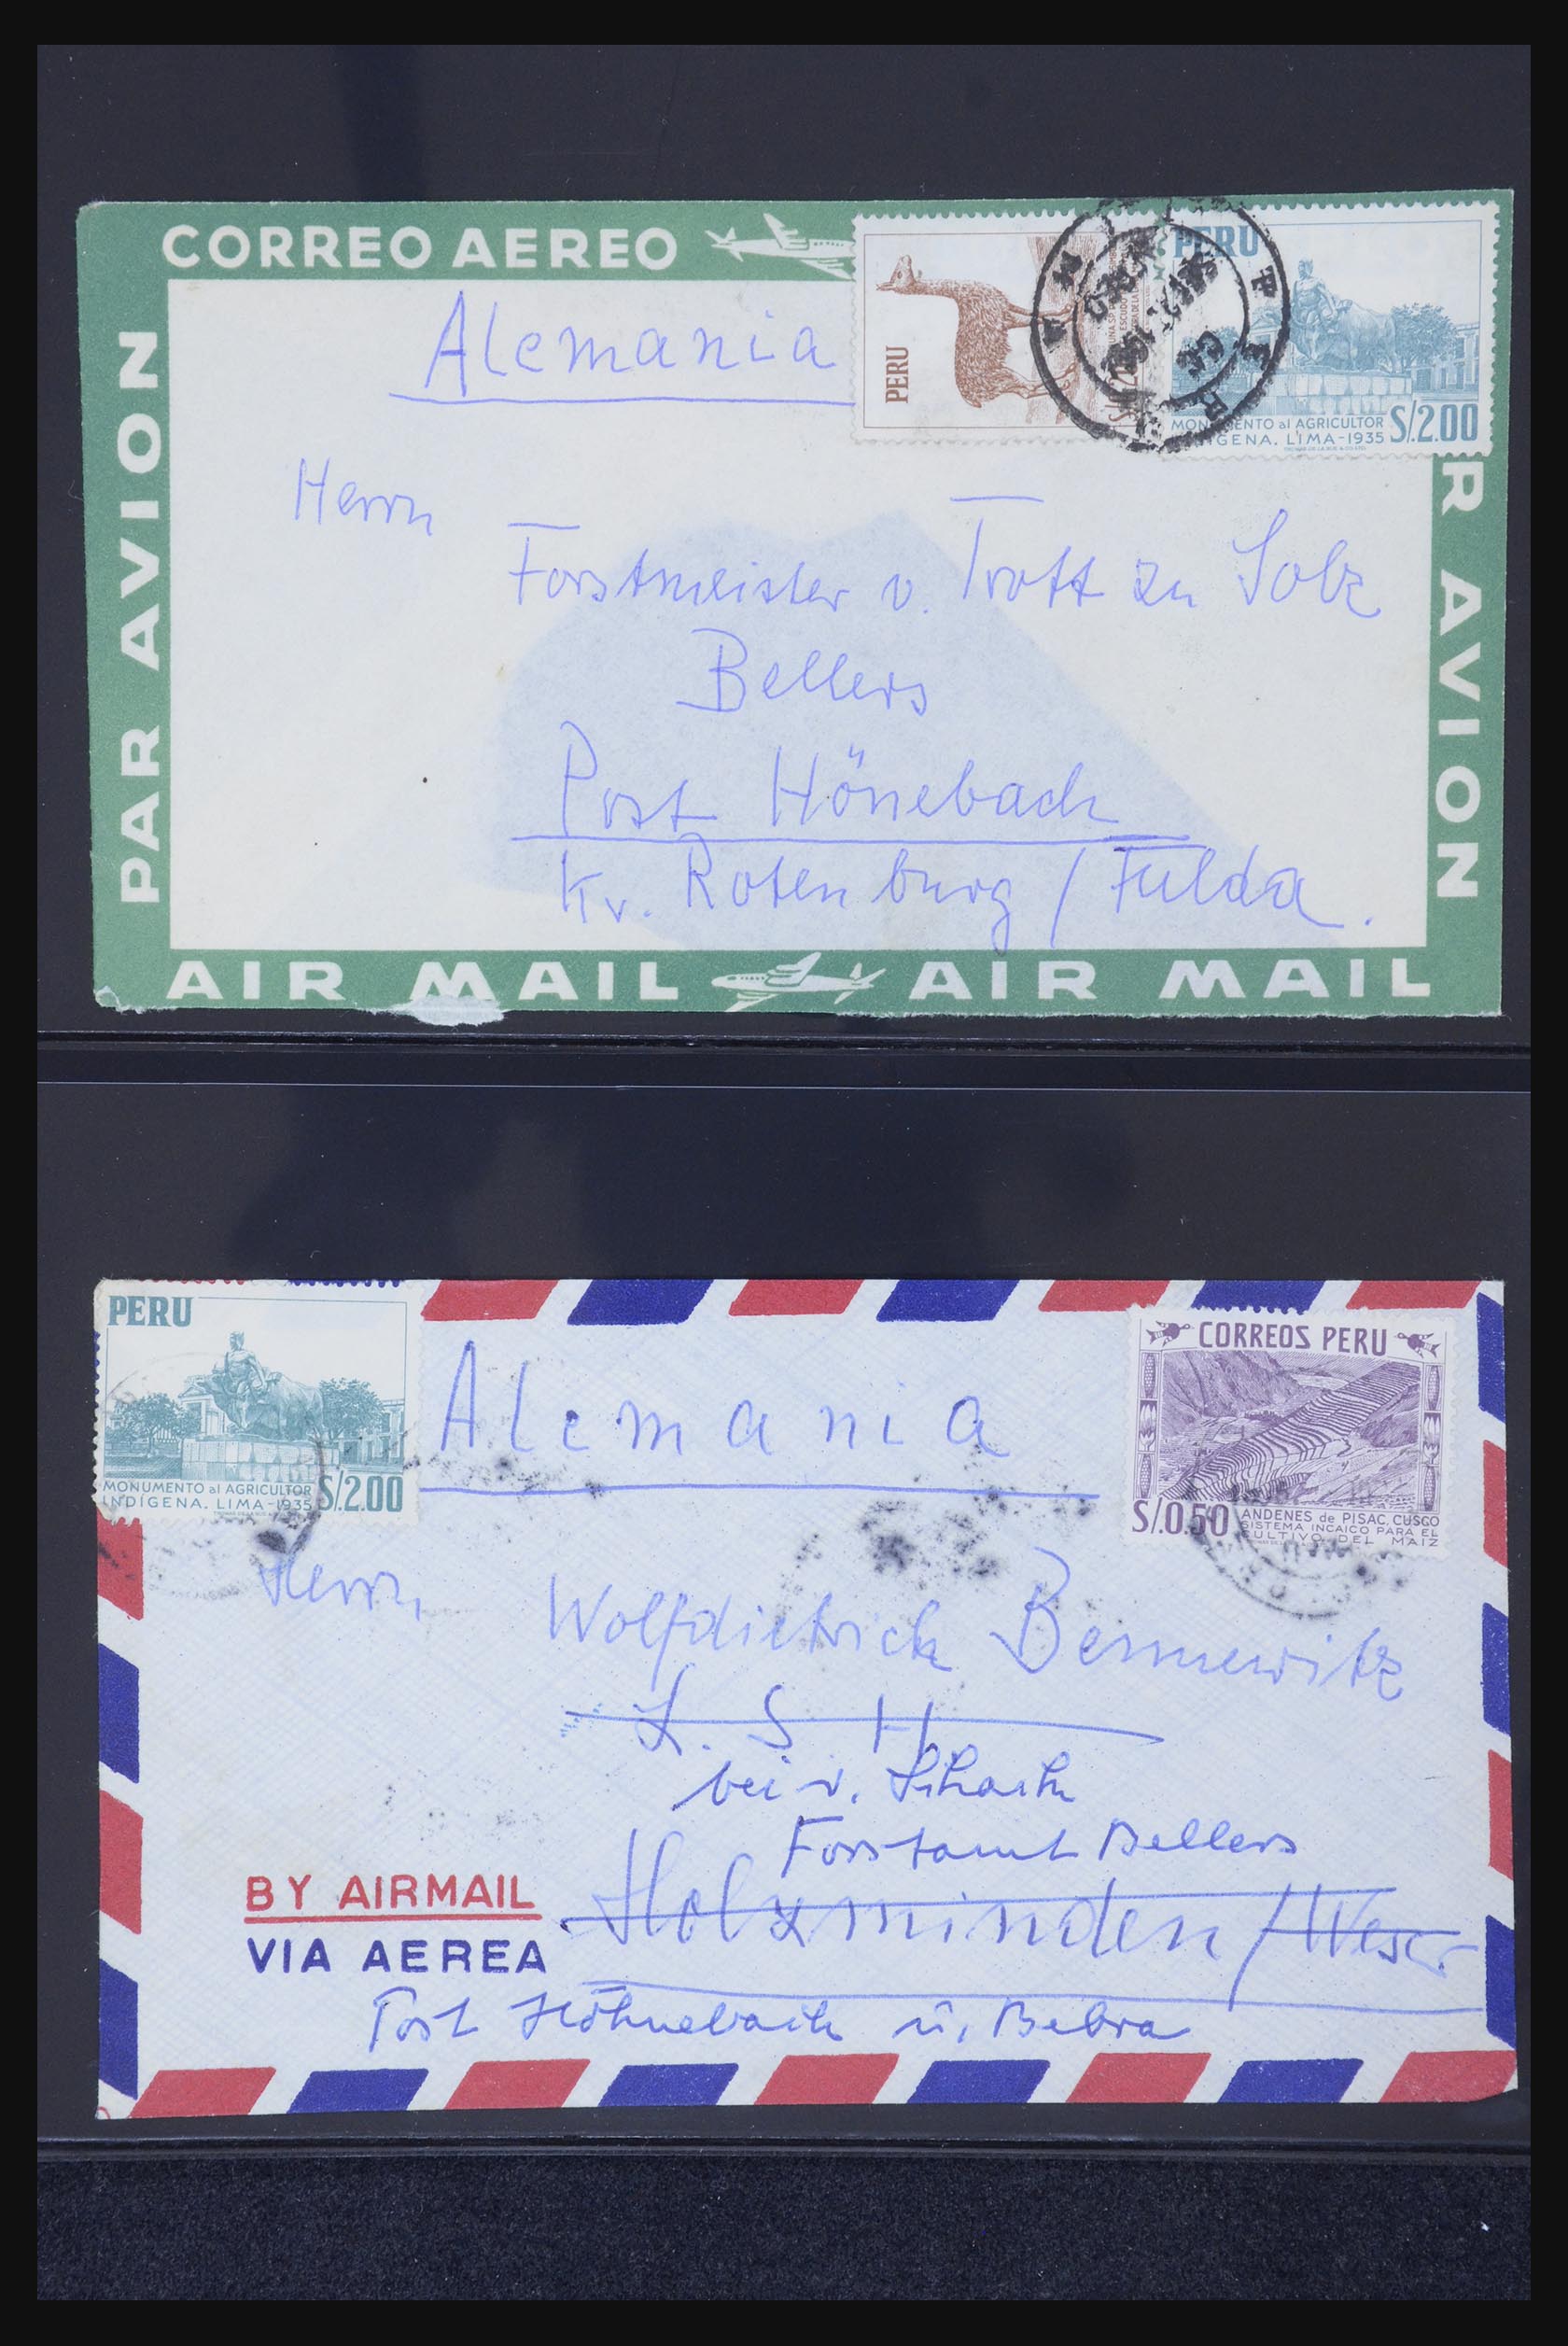 CORREO AEREO
PAR AVION
PERU
PERU
MONUMENTO al AGRICULTOR
INDÍGENA. LIMA-1935 S/.2.00
Alemania
Herrn
Forstmeister v. Trott zu Solz
Bellers
Post Hönebach
Kr. Rotenburg / Fulda.
R AVION
AIR MAIL AIR MAIL
PERU
MONUMENTO al AGRICULTOR
INDÍGENA. LIMA-1935 S/.2.00
Alemania
CORREOS PERU
S/.0.50 ANDENES de PISAC, CUSCO
SISTEMA INCAICO PARA EL
CULTIVO DEL MAIZ
Herrn
Wolfdietrich Bennewitz
L. S. H
bei v. Schack
Forstamt Bellers
Holzminden / Weser
BY AIRMAIL
VIA AEREA
Post Höhnebach ü. Bebra